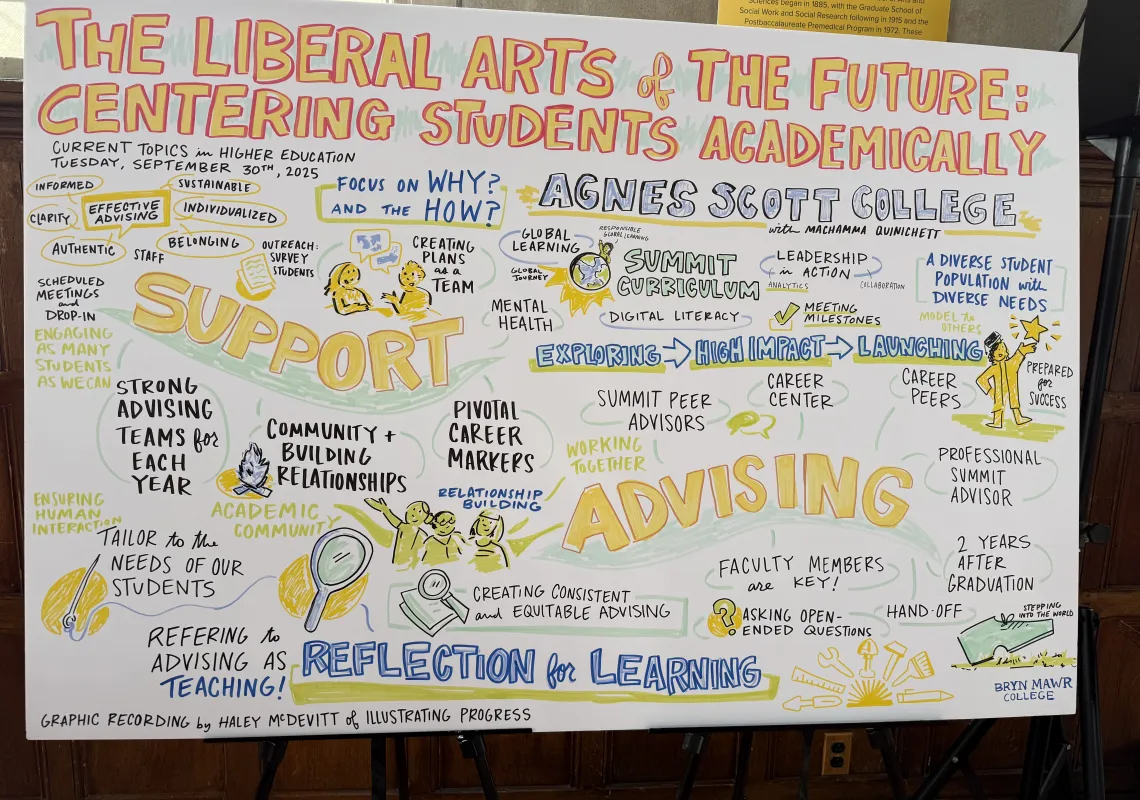 Sciences began in 1885, with the Graduate School of
Social Work and Social Research following in 1915 and the
Postbaccalaureate Premedical Program in 1972. These
THE LIBERAL ARTS of THE FUTURE:
CENTERING STUDENTS ACADEMICALLY
CURRENT TOPICS in HIGHER EDUCATION
TUESDAY, SEPTEMBER 30TH, 2025
INFORMED
SUSTAINABLE
CLARITY
EFFECTIVE
ADVISING
INDIVIDUALIZED
AUTHENTIC
STAFF
BELONGING
FOCUS ON WHY?
AND THE HOW?
OUTREACH:
SURVEY
STUDENTS
CREATING
PLANS
as a
TEAM
SCHEDULED
MEETINGS
and
DROP-IN
ENGAGING
AS MANY
STUDENTS
AS WE CAN
SUPPORT
STRONG
ADVISING
TEAMS for
EACH
YEAR
COMMUNITY +
BUILDING
RELATIONSHIPS
PIVOTAL
CAREER
MARKERS
ENSURING
HUMAN
INTERACTION
ACADEMIC
COMMUNITY
RELATIONSHIP
BUILDING
TAILOR to the
NEEDS OF OUR
STUDENTS
REFERING to
ADVISING AS
TEACHING!
CREATING CONSISTENT
and EQUITABLE ADVISING
REFLECTION for LEARNING
AGNES SCOTT COLLEGE
with MACHAMMA QUINICHETT
GLOBAL
LEARNING
RESPONSIBLE
GLOBAL LEARNING
GLOBAL
JOURNEY
SUMMIT
CURRICULUM
LEADERSHIP
in ACTION
ANALYTICS
COLLABORATION
A DIVERSE STUDENT
POPULATION with
DIVERSE NEEDS
MENTAL
HEALTH
DIGITAL LITERACY
MEETING
MILESTONES
MODEL to
OTHERS
EXPLORING → HIGH IMPACT → LAUNCHING
PREPARED
for
SUCCESS
SUMMIT PEER
ADVISORS
CAREER
CENTER
CAREER
PEERS
WORKING
TOGETHER
ADVISING
PROFESSIONAL
SUMMIT
ADVISOR
FACULTY MEMBERS
are KEY!
2 YEARS
AFTER
GRADUATION
?
ASKING OPEN-
ENDED QUESTIONS
HAND-OFF
STEPPING
INTO THE WORLD
BRYN MAWR
COLLEGE
GRAPHIC RECORDING by HALEY McDEVITT of ILLUSTRATING PROGRESS